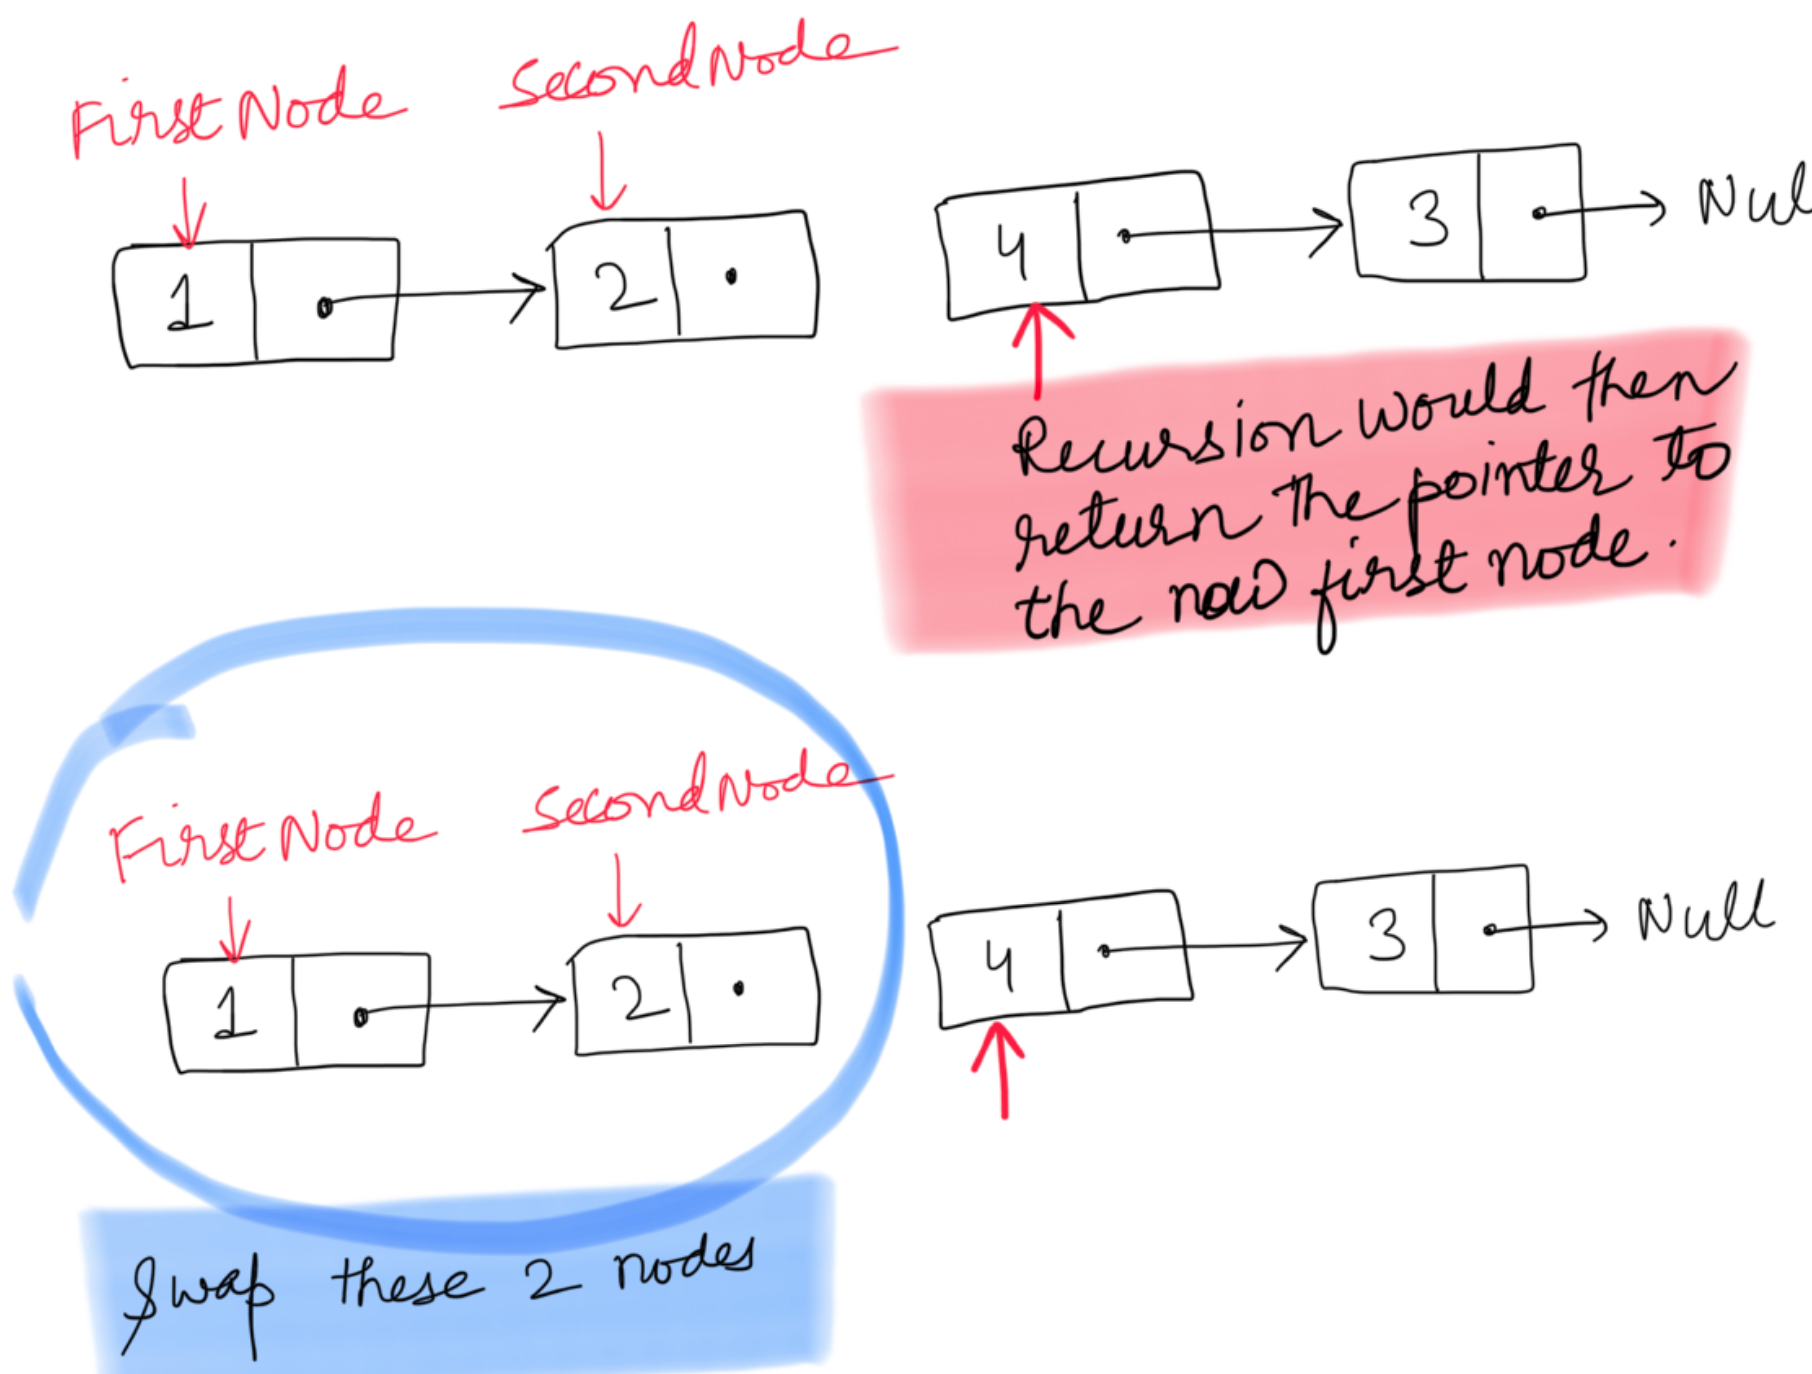 First Node SecondNode
1 2 4 3 Nul
Recursion would then
return the pointer to
the now first node.
First Node SecondNode
1 2 4 3 Null
Swap these 2 nodes